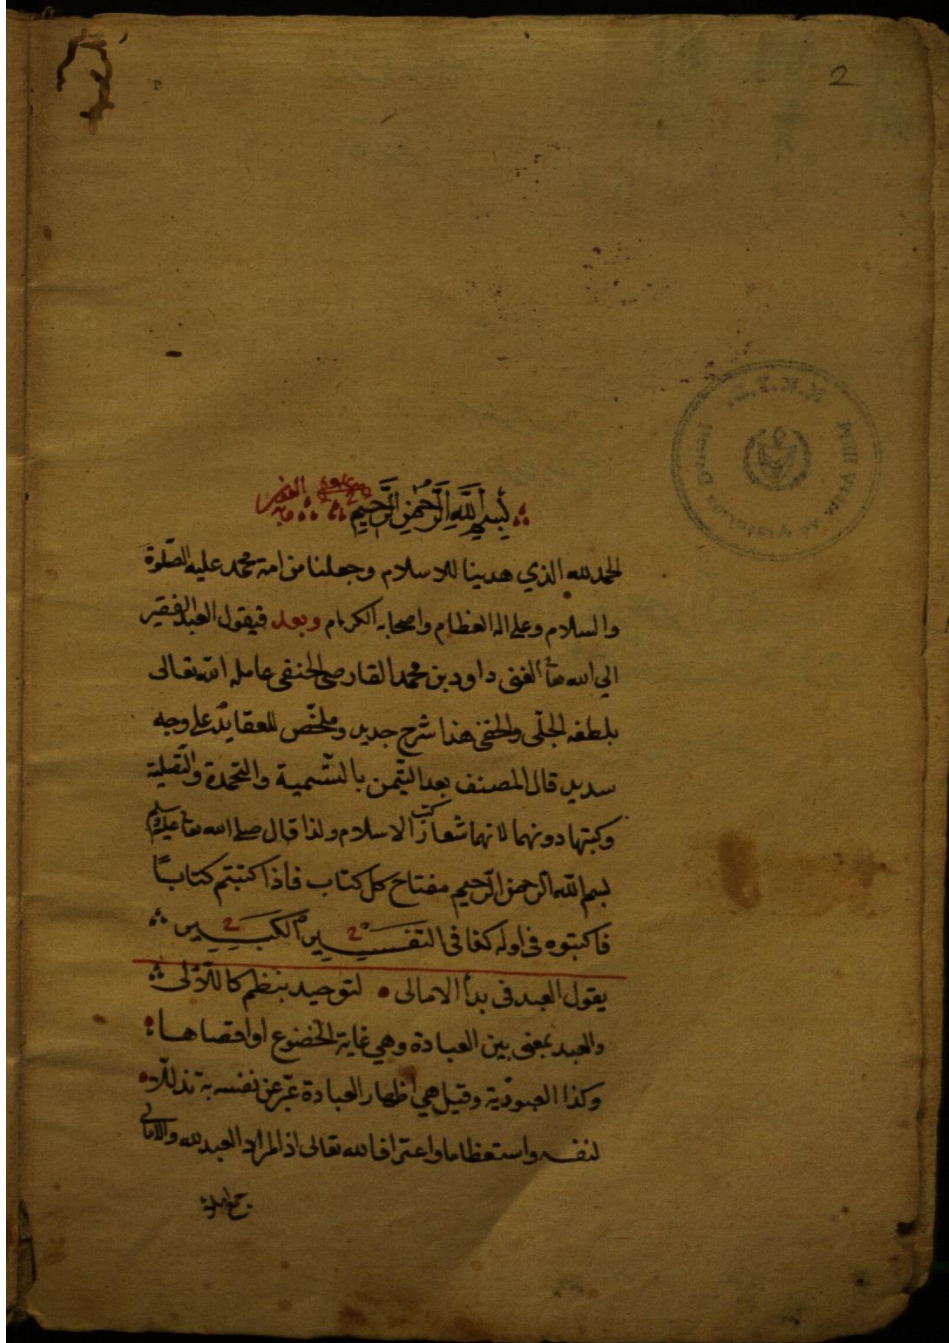 2
بسم الله الرحمن الرحيم
الحمد لله الذي هدينا للاسلام وجعلنا من امة محمد عليه الصلوة
والسلام وعلى اله العظام واصحابه الكرام وبعد فيقول العبد الفقير
الي الله تعا الغنى داود بن محمد القارصى الحنفى عامله الله تعالى
بلطفه الجلى والخفى هذا شرح جديد وملخص للعقايد على وجه
سديد قال المصنف بعد التيمن بالتسمية والتحمدة والتقلية
وكتبها دونهما لانهما شعار كتب الاسلام ولذا قال صلى الله تعا عليه وسلم
بسم الله الرحمن الرحيم مفتاح كل كتاب فاذا كتبتم كتابًا
فاكتبوه فى اوله كذا فى التفسير الكبير
يقول العبد فى بدأ الامالى لتوحيد بنظم كاللآلى
والعبد بمعنى بين العبادة وهي غاية الخضوع او اقصاها
وكذا العبودية وقيل هي اظهار العبادة عبر عن نفسه به تذللا
لنفسه واستعظاما واعترافا لله تعالى اذ المراد العبد لله والامالى
جمع املاء
K.K.T.C.
Milli Arşiv